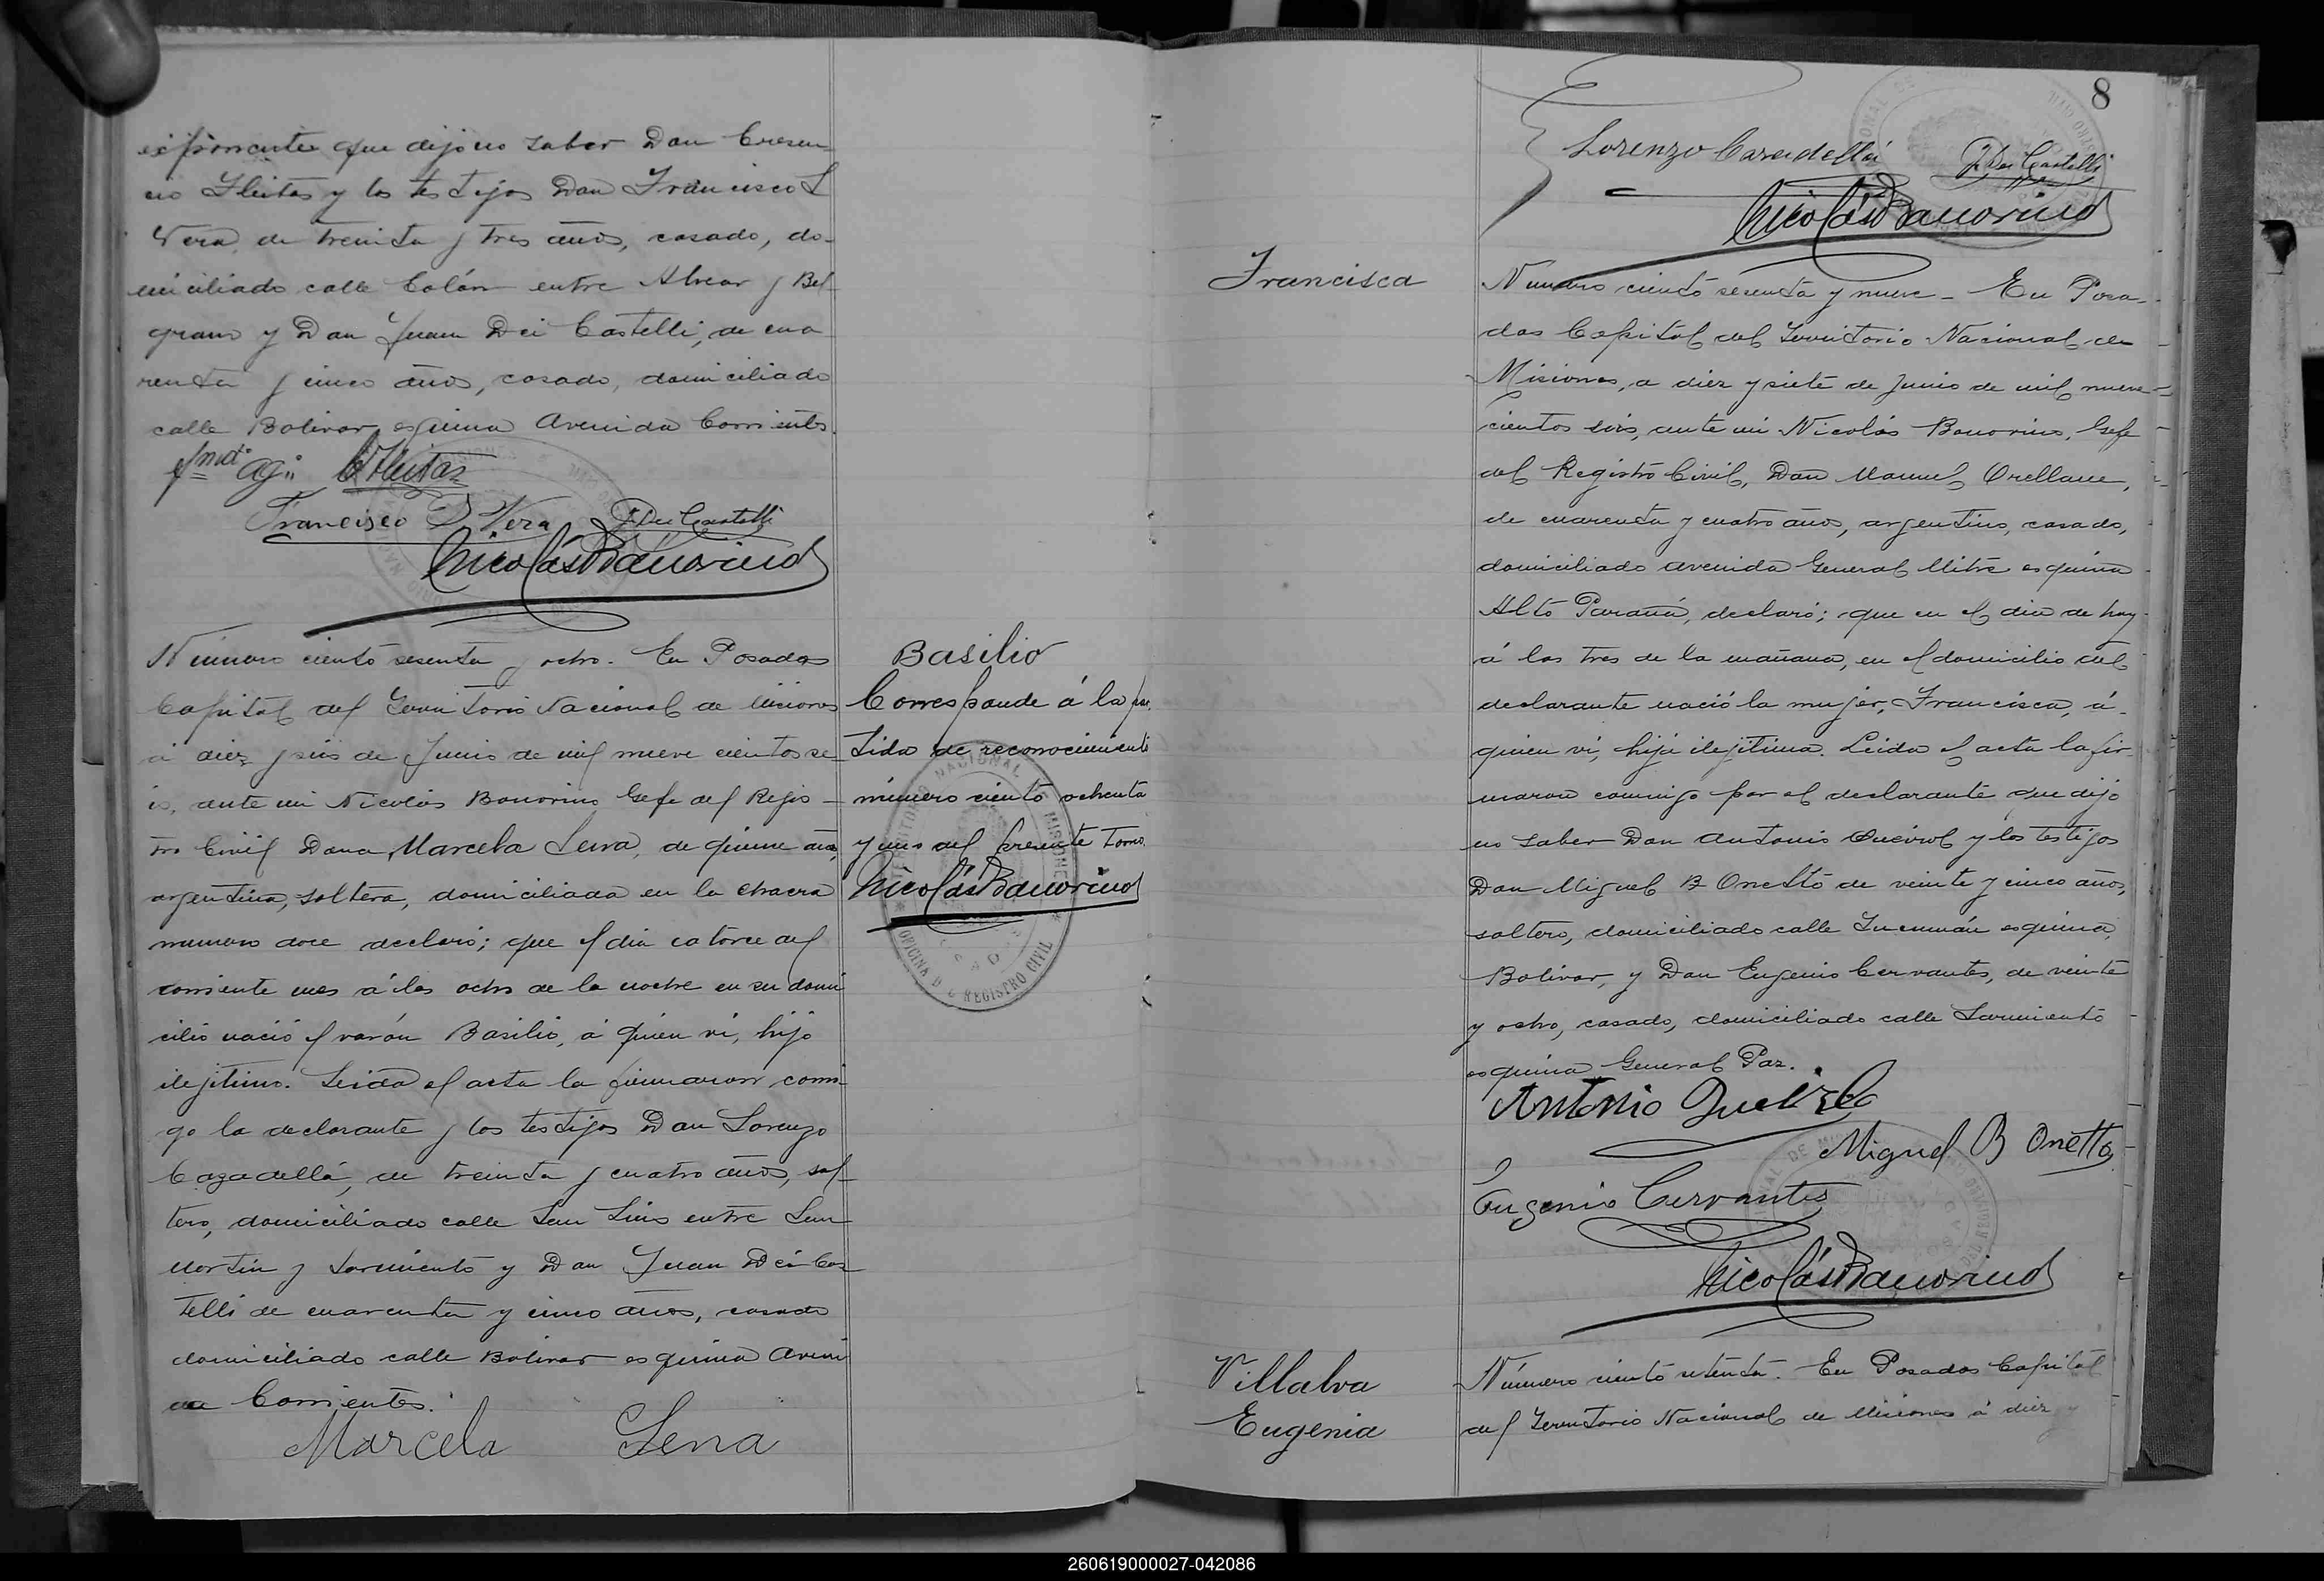 exponente que dijo no saber Don Cresen
cio Fleitas y los testigos Don Francisco L
Vera, de treinta y tres años, casado, do-
miciliado calle Colón entre Alvear y Bel
grano y Don Juan Dei Castelli, de cua
renta y cinco años, casado, domiciliado
calle Bolivar esquina Avenida Corrientes.
C Fleitas
Francisco L Vera J Dei Castelli
Nicolás Bonorino
Número ciento sesenta y ocho. En Posadas
Capital del Territorio Nacional de Misiones
á diez y seis de Junio de mil nueve cientos se-
is, ante mi Nicolás Bonorino Gefe del Regis-
tro Civil Dona Marcela Sena, de quince años,
argentina, soltera, domiciliada en la chacra
numero doce declaró; que el dia catorce del
corriente mes á las ocho de la noche en su domi
cilio nació el varón Basilio, á quien ví, hijo
ilejitimo. Leida el acta la firmaron conmi
go la declarante y los testigos Don Lorenzo
Cazadellá, de treinta y cuatro años, sol-
tero, domiciliado calle San Luis entre San
Martin y Sarmiento y Don Juan Dei Cas-
telli de cuarenta y cinco años, casado
domiciliado calle Bolivar esquina Aveni
da Corrientes.
Marcela Sena
Basilio
Corresponde á la par
tida de reconocimiento
número ciento ochenta
y uno del presente tomo.
Nicolás Bonorino
TERRITORIO NACIONAL MISIONES
OFICINA DE REGISTRO CIVIL
8
Lorenzo Cazadellá J Dei Castelli
Nicolás Bonorino
Francisca
Número ciento sesenta y nueve - En Posa-
das Capital del Territorio Nacional de
Misiones, a diez y siete de Junio de mil nueve-
cientos seis, ante mi Nicolás Bonorino, Gefe
del Registro Civil, Don Manuel Orellana,
de cuarenta y cuatro años, argentino, casado,
domiciliado avenida General Mitre esquina
Alto Paraná, declaró; que en el dia de hoy
á las tres de la mañana, en el domicilio del
declarante nació la mujer, Francisca, á
quien ví, hija ilejitima. Leida el acta la fir-
maron conmigo por el declarante que dijo
no saber Don Antonio Queirol y los testigos
Don Miguel B Onetto de veinte y cinco años,
soltero, domiciliado calle Tucumán esquina
Bolivar, y Don Eugenio Cervantes, de veinte
y ocho, casado, domiciliado calle Sarmiento
esquina General Paz.
Antonio Queirol
Miguel B Onetto
Eugenio Cervantes
Nicolás Bonorino
Villalva
Eugenia
Número ciento setenta. En Posadas Capital
del Territorio Nacional de Misiones á diez y
260619000027-042086